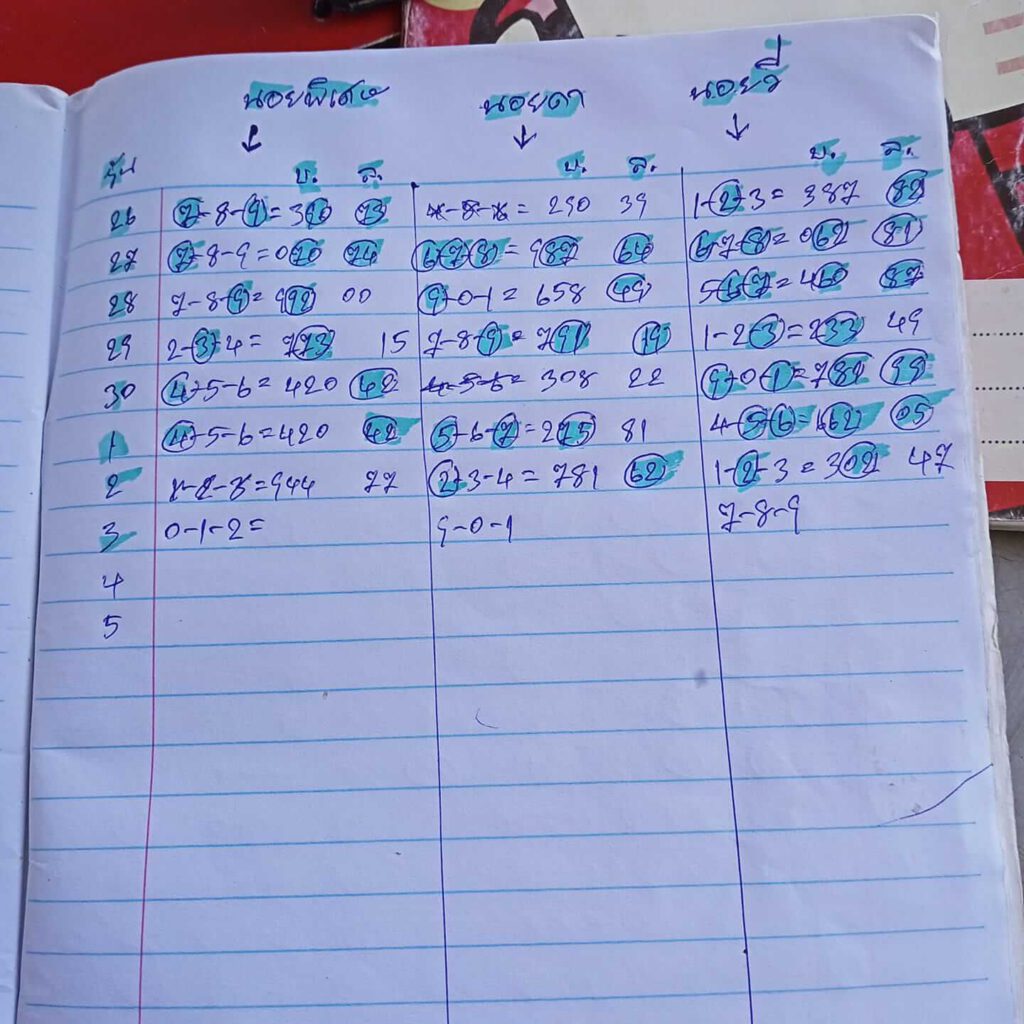 นอยพิเศษ นอยดา นอยวี่
↓ ↓ ↓
บ. ล. บ. ล. บ. ล.
26 7-8-9 = 390 73 = 290 39 1-2-3 = 387 82
27 7-8-9 = 070 74 6-7-8 = 987 64 6-7-8 = 062 81
28 7-8-9 = 992 00 9-0-1 = 658 49 5-6-7 = 460 87
29 2-3-4 = 773 15 7-8-9 = 791 19 1-2-3 = 233 49
30 4-5-6 = 420 42 4-5-6 = 308 22 9-0-1 = 782 99
1 4-5-6 = 420 42 5-6-7 = 275 81 4-5-6 = 162 05
2 1-2-3 = 944 77 2-3-4 = 781 62 1-2-3 = 302 47
3 0-1-2 = 9-0-1 7-8-9
4
5